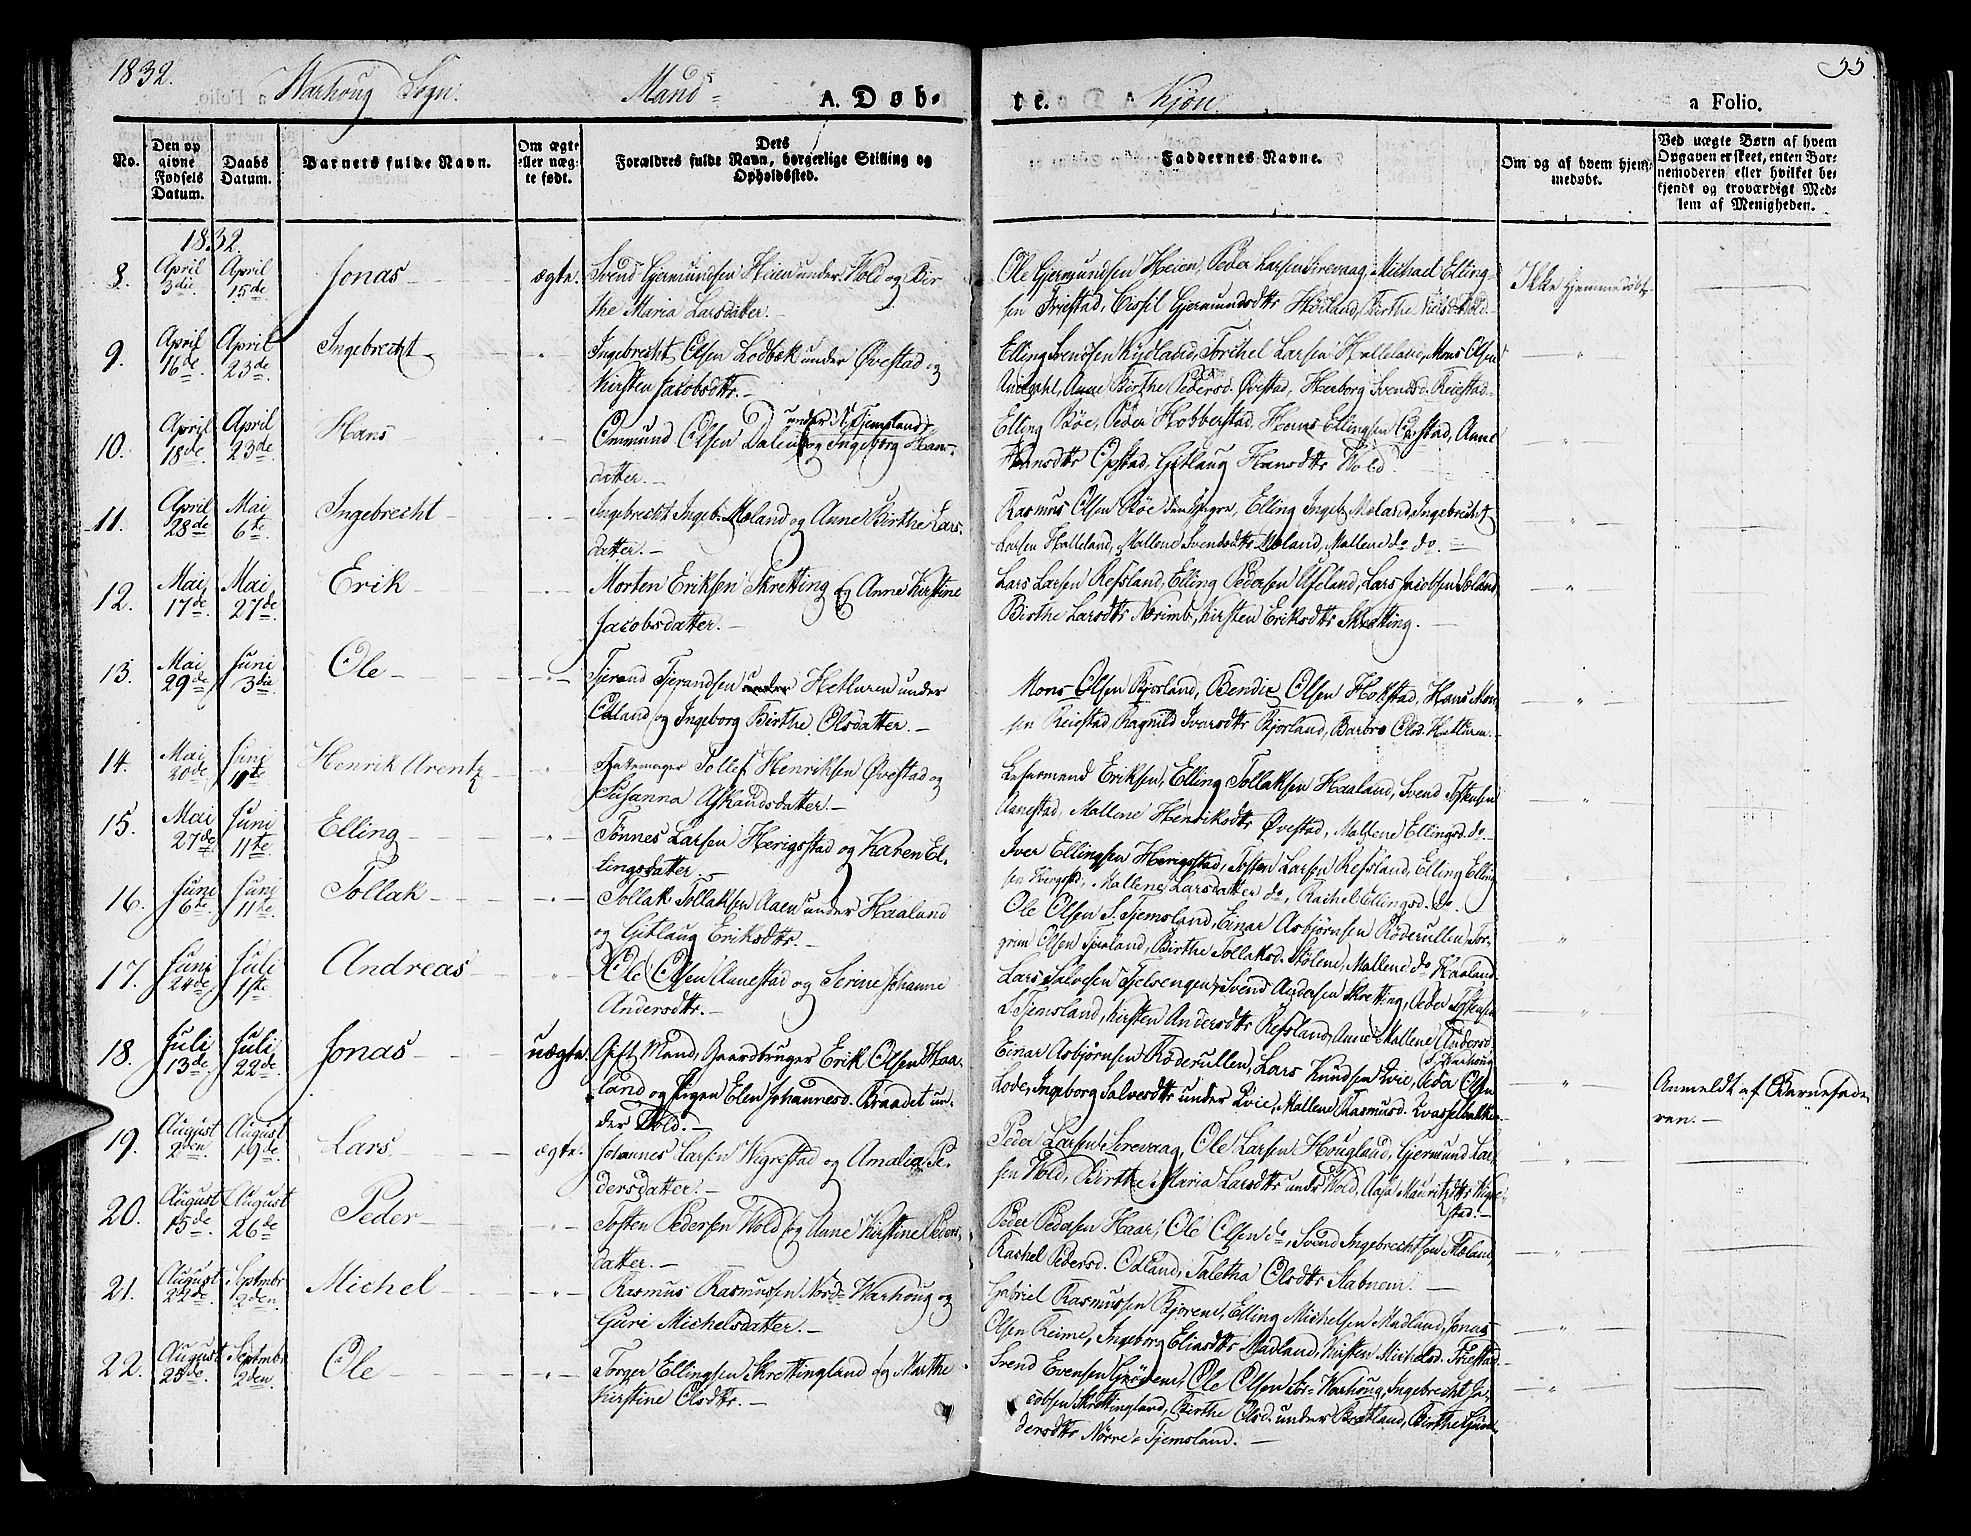 1832.
Warhoug Sogn.
Mand-
A. Døb-
te.
Kjøn
55
a Folio.
No.
Den opgivne Fødsels Datum.
Daabs Datum.
Barnets fulde Navn.
Om ægte eller uægte født.
Dets Forældres fulde Navn, borgerlige Stilling og Opholdssted.
Faddernes Navne.
Om og af hvem hjemmedøbt.
Ved uægte Børn af hvem Opgaven er skeet, enten Barnemoderen eller hvilket bekjendt og troværdigt Medlem af Menigheden.
1832.
8. April 3die April 15de Jonas ægte. Svend Gjermundsen Heien under Wold og Bir-
the Maria Larsdatter.
Ole Gjermundsen Heien, Peder Larsen Sirevaag, Michael Elling-
sen Friestad, Cissil Gjermundsdtr Høiland, Birthe
Ikke hjemmedøbt
9. April 16de April 23de Ingebrecht Ingebrecht Olsen Lodbæk under Øvestad og
Kirsten Jacobsdtr.
Elling Svendsen Rydland, Torchel Larsen Halleland, Mons Olsen
Anne Birthe Pedersd. Øvestad, Herborg Svendsd. Reiestad
10. April 18de April 23de Hans Ommund Olsen Dalen under N. Tjemsland og Ingeborg Hans-
datter.
Elling Bøe, Peder Hobberstad, Hans Ellingsen Opstad, Anne
Hansdtr Opstad, Gitlaug Hansdtr Wold
11. April 28de Mai 6te Ingebrecht Ingebrecht Ingeb. Moland og Anne Birthe Lars-
datter.
Rasmus Olsen Bøe den Yngre, Elling Ingeb. Moland, Ingebrecht
Larsen Halleland, Mallene Svendsdtr Moland, Mallene do do.
12. Mai 17de Mai 27de Erik Morten Eriksen Skretting og Anne Kirstine
Jacobsdatter.
Lars Larsen Refsland, Elling Pedersen Lars Jacobsen
Birthe Larsdtr Kirsten Eriksdtr Skretting.
13. Mai 29de Juni 3die Ole Tjerand Tjerandsen Hetluren under
Odland og Ingeborg Birthe Olsdatter.
Mons Olsen Bjorland, Bendix Olsen Hans Mon-
sen Reiestad, Ragnild Ivarsdtr Bjorland, Barbro Olsd. Hetluren.
14. Mai 20de Juni 11te Henrik Arentz Tollef Henriksen Øvestad og
Susanna Askaudsdatter.
Eriksen, Elling Tollaksen Haaland, Svend Tostensen
Aanestad, Mallene Henriksdtr Øvestad, Mallene Ellingsd. do
15. Mai 27de Juni 11te Elling Tønnes Larsen Herigstad og Karen El-
lingsdatter
Iver Ellingsen Herigstad, Tosten Larsen Refsland, Elling Elling-
sen Herigstad, Mallene Larsdatter do, Rachel Ellingsd. do.
16. Juni 6te Juni 11te Tollak Tollak Tollaksen Aaen under Haaland
og Gitlaug Eriksdtr.
Ole Olsen S. Tjemsland, Einar Asbjørnsen Røderullen, Tor-
grim Olsen Birthe Tollaksd. Mallene do Haaland.
17. Juni 24de Juli 1ste Andreas Ole Olsen Aanestad og Serine Johanne
Andersdtr.
Lars Salvesen Svend Andersen Skretting, Peder Tostensen
S. Tjemsland, Kirsten Andersdtr Refsland, Anne Mallene Andersd.
S. Warhoug
18. Juli 13de Juli 22de Jonas uægte. Gift Mand, Gaardbruger Erik Olsen Haa-
land og Pigen Elen Johannesd. Braadet un-
der Wold.
Einar Asbjørnsen Røderullen, Lars Knudsen Qvie, Peder Olsen
Lode, Ingeborg Salvesdtr under Qvie, Mallene Rasmusd.
Anmeldt af Barnefade-
ren.
19. August 2den August 19de Lars ægte. Johannes Larsen Wigrestad og Amalia Pe-
dersdatter.
Peder Larsen Sirevaag, Ole Larsen Hougland, Gjermund Lar-
sen Wold, Birthe Maria Larsdtr under Wold, Aasa Mauritzdtr Wigre-
stad.
20. August 15de August 26de Peder Tosten Pedersen Wold og Anne Kirstine Peders-
datter.
Peder Pedersen Haar, Ole Olsen do, Svend Ingebrechtsen Moland,
Rachel Pedersd. Odland, Taletha Olsdtr Stabnem.
21. August 22de Septmbr 2den Michel Rasmus Rasmussen Nord-Warhoug og
Guri Michelsdatter.
Gabriel Rasmussen Elling Michelsen Madland, Jonas
Olsen Reime, Ingeborg Eliasdtr Madland, Kirsten Michelsd. Friestad
22. August 25de Septmbr 2den Ole Torger Ellingsen Skrettingland og Marthe
Kirstine Olsdtr.
Svend Evensen Ole Olsen Sør-Warhoug, Ingebrecht Ja-
cobsen Skrettingland, Birthe Olsd. under Bratland, Birthe
dersdtr Nørre-Tjemsland.